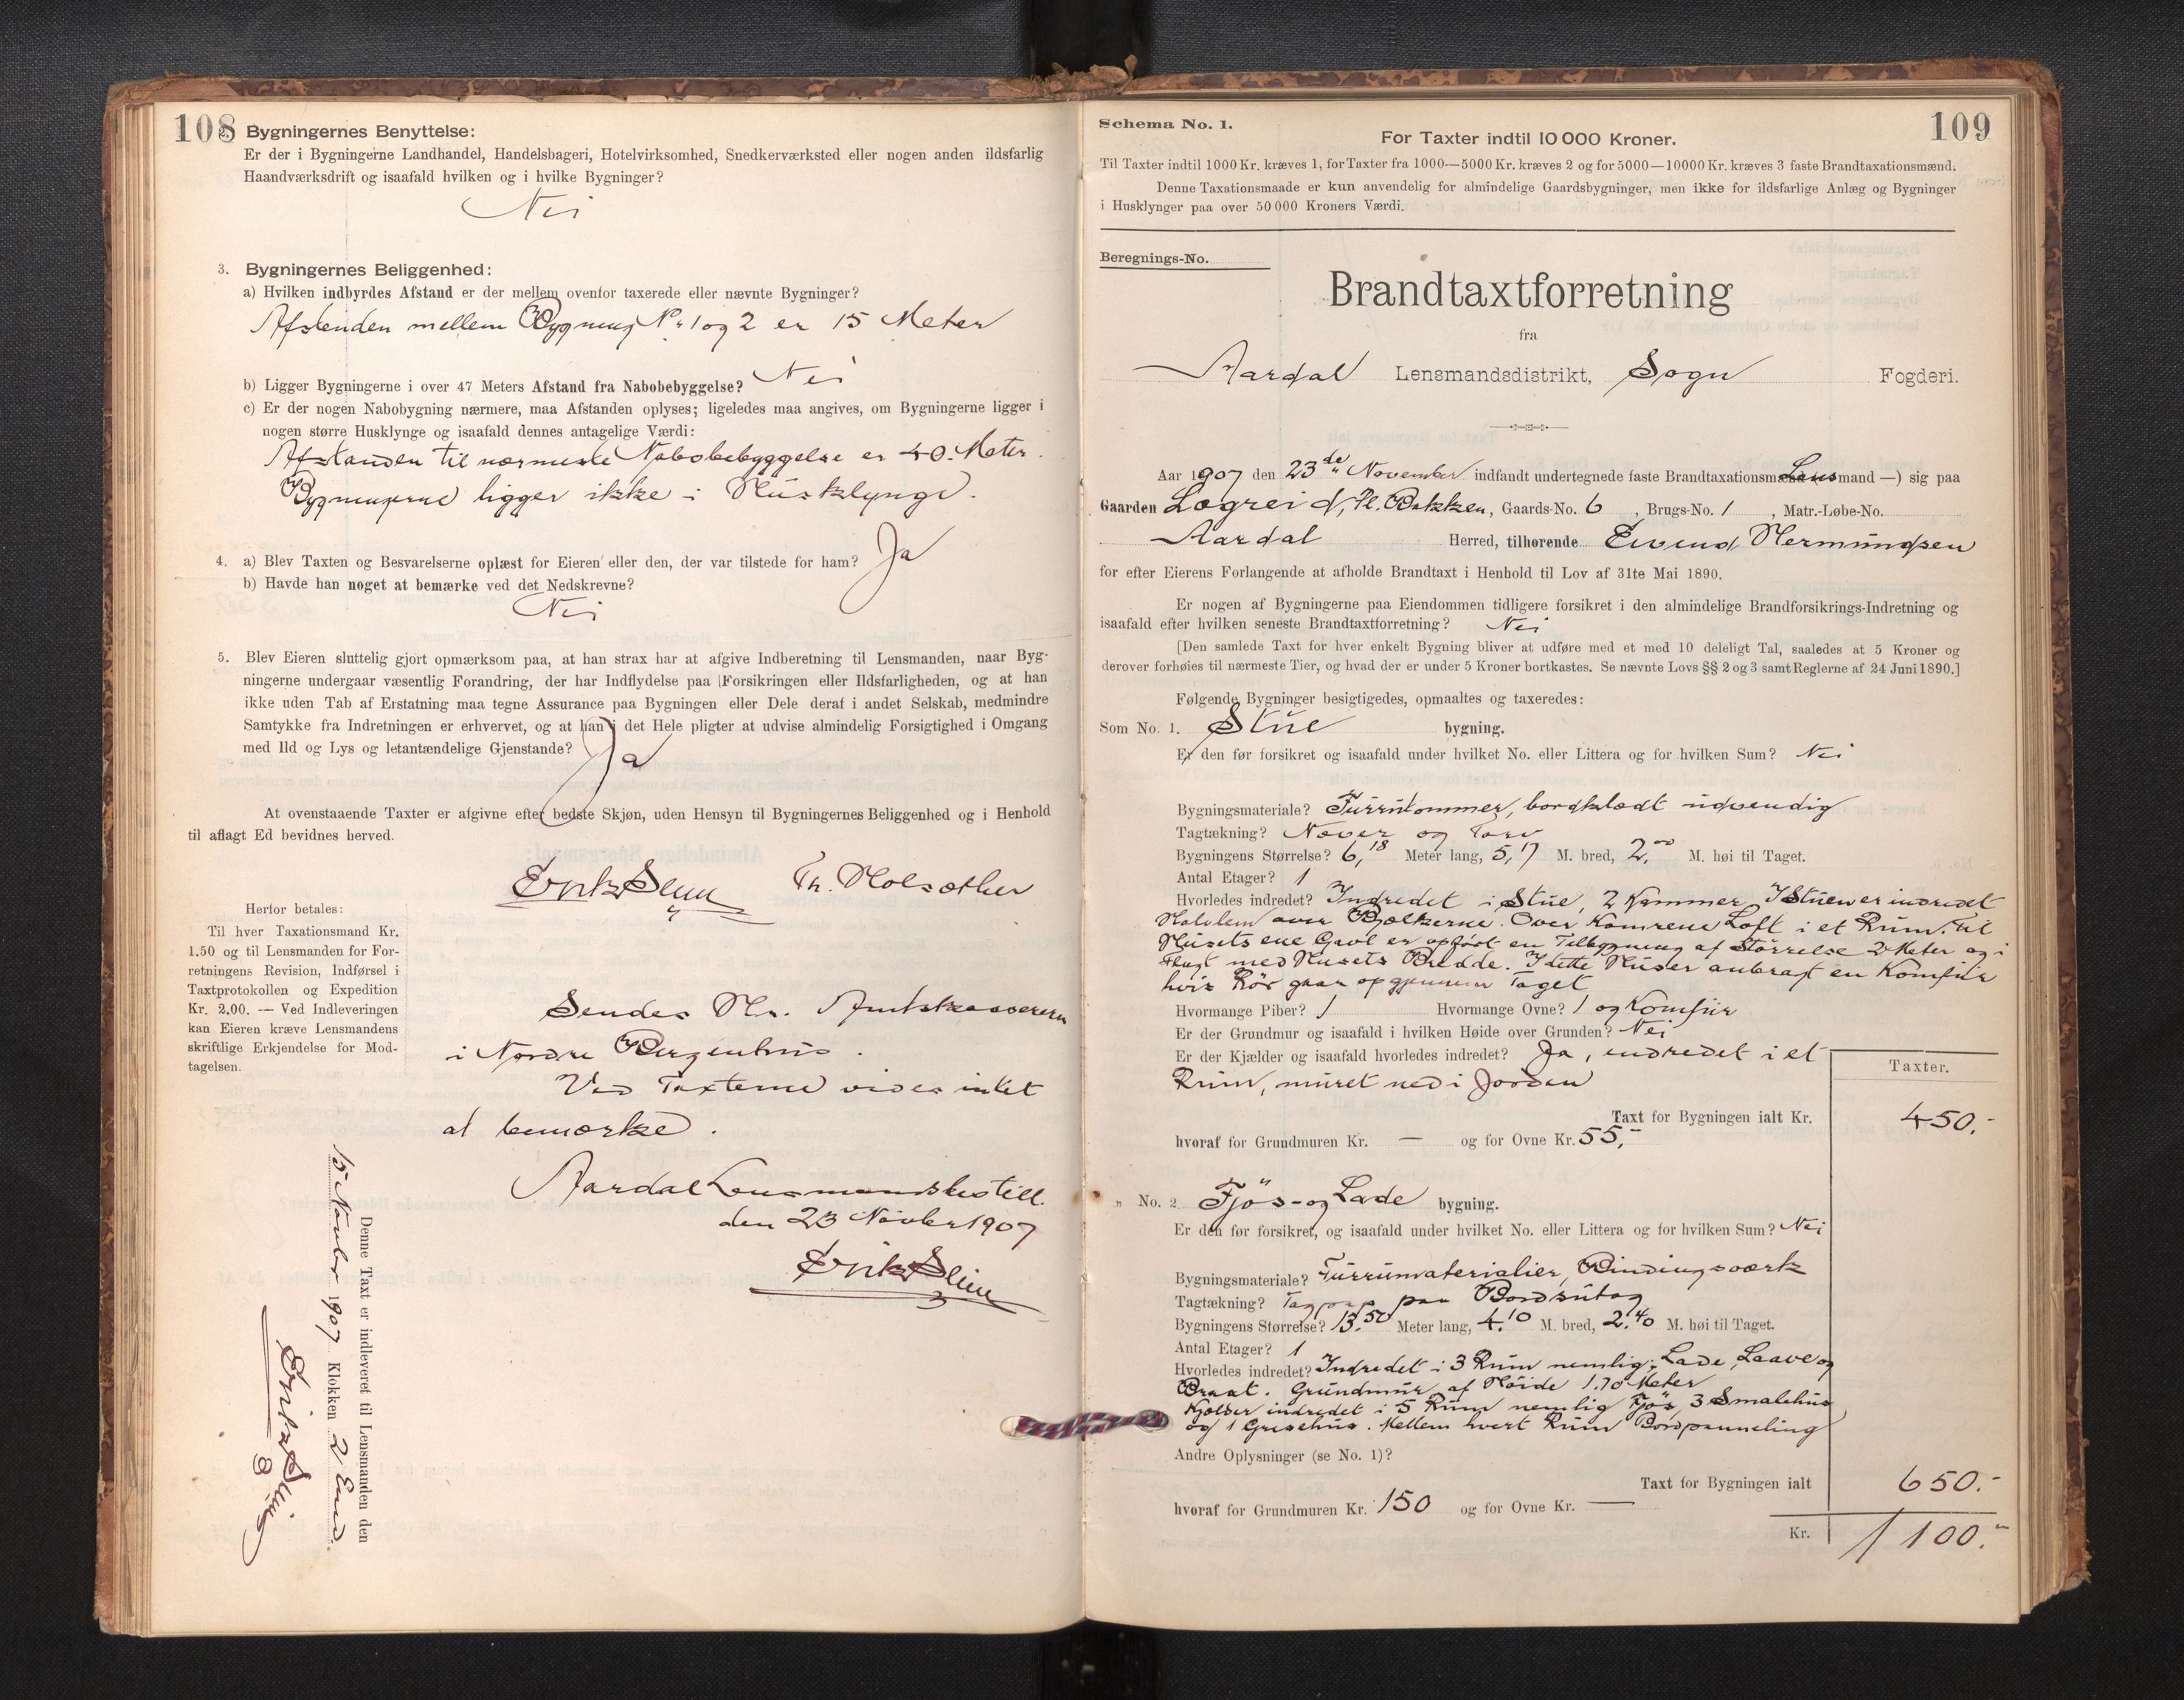 108
2. Bygningernes Benyttelse:
Er der i Bygningerne Landhandel, Handelsbageri, Hotelvirksomhed, Snedkerværksted eller nogen anden ildsfarlig
Haandværksdrift og isaafald hvilken og i hvilke Bygninger?
Nei
3. Bygningernes Beliggenhed:
a) Hvilken indbyrdes Afstand er der mellem ovenfor taxerede eller nævnte Bygninger?
Afstanden mellem Bygning No 1 og 2 er 15 Meter
b) Ligger Bygningerne i over 47 Meters Afstand fra Nabobebyggelse? Nei
c) Er der nogen Nabobygning nærmere, maa Afstanden oplyses; ligeledes maa angives, om Bygningerne ligger i
nogen større Husklynge og isaafald dennes antagelige Værdi:
Afstanden til nærmeste Nabobebyggelse er 40. Meter.
Bygningerne ligger ikke i Husklynge.
4. a) Blev Taxten og Besvarelserne oplæst for Eieren eller den, der var tilstede for ham? Ja
b) Havde han noget at bemærke ved det Nedskrevne?
Nei
5. Blev Eieren sluttelig gjort opmærksom paa, at han strax har at afgive Indberetning til Lensmanden, naar Byg-
ningerne undergaar væsentlig Forandring, der har Indflydelse paa Forsikringen eller Ildsfarligheden, og at han
ikke uden Tab af Erstatning maa tegne Assurance paa Bygningen eller Dele deraf i andet Selskab, medmindre
Samtykke fra Indretningen er erhvervet, og at han i det Hele pligter at udvise almindelig Forsigtighed i Omgang
med Ild og Lys og letantændelige Gjenstande?
Ja
At ovenstaaende Taxter er afgivne efter bedste Skjøn, uden Hensyn til Bygningernes Beliggenhed og i Henhold
til aflagt Ed bevidnes herved.
Th. Holsæther
Herfor betales:
Til hver Taxationsmand Kr.
1.50 og til Lensmanden for For-
retningens Revision, Indførsel i
Taxtprotokollen og Expedition
Kr. 2.00. — Ved Indleveringen
kan Eieren kræve Lensmandens
skriftlige Erkjendelse for Mod-
tagelsen.
Sendes Hr. Amtskassereren
i Nordre Bergenhus.
Ved Taxterne vides intet
at bemærke.
Aardal Lensmandsbestill.
den 23 Novber 1907
Denne Taxt er indleveret til Lensmanden den
15 Novbr 1907 Klokken 2 Emd.
109
Schema No. 1.
For Taxter indtil 10 000 Kroner.
Til Taxter indtil 1000 Kr. kræves 1, for Taxter fra 1000—5000 Kr. kræves 2 og for 5000—10000 Kr. kræves 3 faste Brandtaxationsmænd.
Denne Taxationsmaade er kun anvendelig for almindelige Gaardsbygninger, men ikke for ildsfarlige Anlæg og Bygninger
i Husklynger paa over 50 000 Kroners Værdi.
Beregnings-No.
Brandtaxtforretning
fra
Aardal Lensmandsdistrikt, Sogn Fogderi.
Aar 1907 den 23de November indfandt undertegnede faste Brandtaxationsmænd Lensmand —) sig paa
Gaarden Lægreid, Pl. Bakken, Gaards-No. 6, Brugs-No. 1, Matr.-Løbe-No.
Aardal Herred, tilhørende Eivend Hermundsen
for efter Eierens Forlangende at afholde Brandtaxt i Henhold til Lov af 31te Mai 1890.
Er nogen af Bygningerne paa Eiendommen tidligere forsikret i den almindelige Brandforsikrings-Indretning og
isaafald efter hvilken seneste Brandtaxtforretning? Nei
[Den samlede Taxt for hver enkelt Bygning bliver at udføre med et med 10 deleligt Tal, saaledes at 5 Kroner og
derover forhøies til nærmeste Tier, og hvad der er under 5 Kroner bortkastes. Se nævnte Lovs §§ 2 og 3 samt Reglerne af 24 Juni 1890.]
Følgende Bygninger besigtigedes, opmaaltes og taxeredes:
Som No. 1. Stue bygning.
Er den før forsikret og isaafald under hvilket No. eller Littera og for hvilken Sum? Nei
Bygningsmateriale? Furutømmer, bordklædt udvendig
Tagtækning? Næver og Torv
Bygningens Størrelse? 6,18 Meter lang, 5,17 M. bred, 2,00 M. høi til Taget.
Antal Etager? 1
Hvorledes indredet? Indredet i Stue, 2 Kammer. I Stuen er indredet
Halvlem over Bjælkerne. Over Kamrene Loft i et Rum. Til
Husets ene Gavl er opført en Tilbygning af Størrelse 2 Meter og i
Flugt med Husets Bredde. I dette Hus er anbragt en Komfur
hvis Rør gaar op gjennem Taget
Hvormange Piber? 1 Hvormange Ovne? 1 og Komfur
Er der Grundmur og isaafald i hvilken Høide over Grunden? Nei
Er der Kjælder og isaafald hvorledes indredet? Ja, indredet i et
Rum, muret ned i Jorden
Taxter.
Taxt for Bygningen ialt Kr. 450.-
hvoraf for Grundmuren Kr. — og for Ovne Kr. 55,-
„ No. 2 Fjøs- og Lade bygning.
Er den før forsikret, og isaafald under hvilket No. eller Littera og for hvilken Sum? Nei
Bygningsmateriale? Furumaterialier, Bindingsværk
Tagtækning? Tagpap paa Bordsutag
Bygningens Størrelse? 13.50 Meter lang, 4.10 M. bred, 2.40 M. høi til Taget.
Antal Etager? 1
Hvorledes indredet? Indredet i 3 Rum nemlig: Lade, Laave og
Braat. Grundmur af Høide 1.70 Meter
Kjælder indredet i 5 Rum nemlig Fjøs, 3 Smalehus
og 1 Grisehus. Mellem hvert Rum Bordpanneling
Andre Oplysninger (se No. 1)?
Taxt for Bygningen ialt 650.-
hvoraf for Grundmuren Kr. 150 og for Ovne Kr. —
Kr. 1100.-